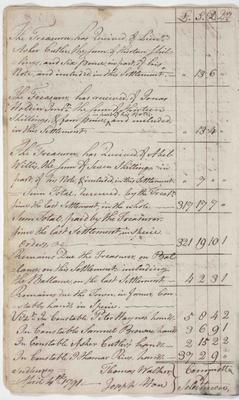 £. S. D. qr
The Treasurer has Received of Lieut.
Asher Cutler the Sum of thirteen Shil-
lings, and Six pence, in part of his
Note, and included in this Settlement — " 13 " 6 "
The Treasurer has received of Jonas
Holden Jun.r the Sum of thirteen
Shillings, & four pence, in part of his Note, and included
in this Settlement — " 13 " 4 "
The Treasurer has Received of Abel
Willis, the Sum of Seven Shillings in
part of his Note, & included in this Settlement — " 7 " "
Sum Total, Received by the Treas.r
since the last Settlement, in the whole 317 17 7 "
Sum Total, paid by the Treasurer
since the last Settlement, is in
Orders, &c — 321 19 10 1
Remains Due the Treasurer, on Bal-
lance, on this Settlement, including
the Ballance, on the last Settlement — 4 2 3 1
Remains due the Town, in former Con-
stables hands in Specie
Viz.t In Constable Peter Haynes hands 5 8 4 2
In Constable Samuel Browns hands 3 6 9 1
In Constable Asher Cutlers hands — 2 15 2 2
In Constable Thomas hands — 37 2 9 "
Sudbury
April 4th 1791.
Thomas Walker
Joseph
Committee
of
Settlement